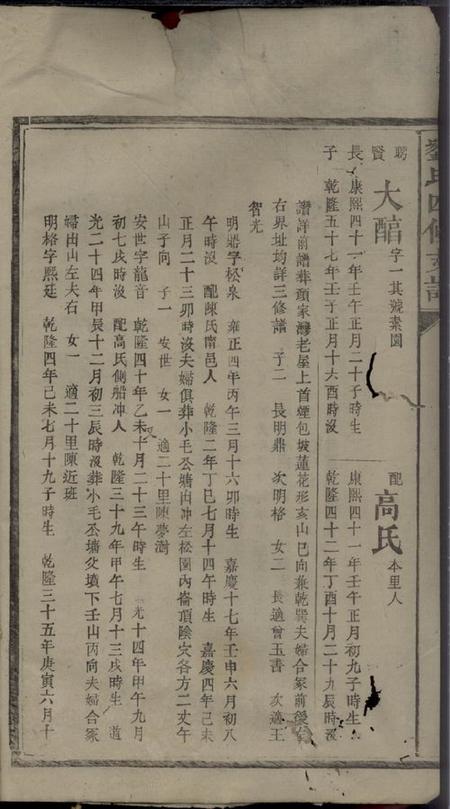 劉氏四修支譜
聘賢長子
大醕字一其號素園
康熙四十一年壬午正月二十子時生
乾隆五十七年壬子正月十六酉時沒
配高氏本里人
康熙四十一年壬午正月初九子時生
乾隆四十二年丁酉十月二十九辰時沒
譜詳前譜葬頭家灣老屋上首煙包坡蓮花形亥山巳向兼乾巽夫婦合冢前後
右界址均詳三修譜 子二 長明鼎 次明格 女二 長適曾玉書 次適王
智光
明鼎字松泉 雍正四年丙午三月十六卯時生 嘉慶十七年壬申六月初八
午時沒 配陳氏南邑人 乾隆二年丁巳七月十四午時生 嘉慶四年己未
正月二十三卯時沒夫婦俱葬小毛公塘內冲左松園內崙頂陰穴各方二丈午
山子向 子一 安世 女一 適二十里陳夢濤
安世字龍音 乾隆四十年乙未十月二十三午時生 光十四年甲午九月
初七戌時沒 配高氏側船冲人 乾隆三十九年甲午七月十三戌時生 道
光二十四年甲辰十二月初三辰時沒葬小毛公塘父墳下壬山丙向夫婦合冢
婦由山左夫右 女一 適二十里陳近班
明格字熙廷 乾隆四年己未七月十九子時生 乾隆三十五年庚寅六月十